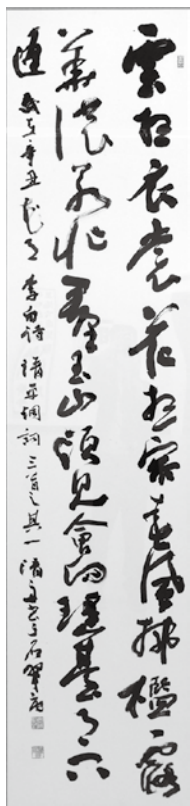 雲想衣裳花想容春風拂檻露
華濃若非羣玉山頭見會向瑤臺月下
逢 歲在辛丑 李白詩 清平調詞 三首之其一